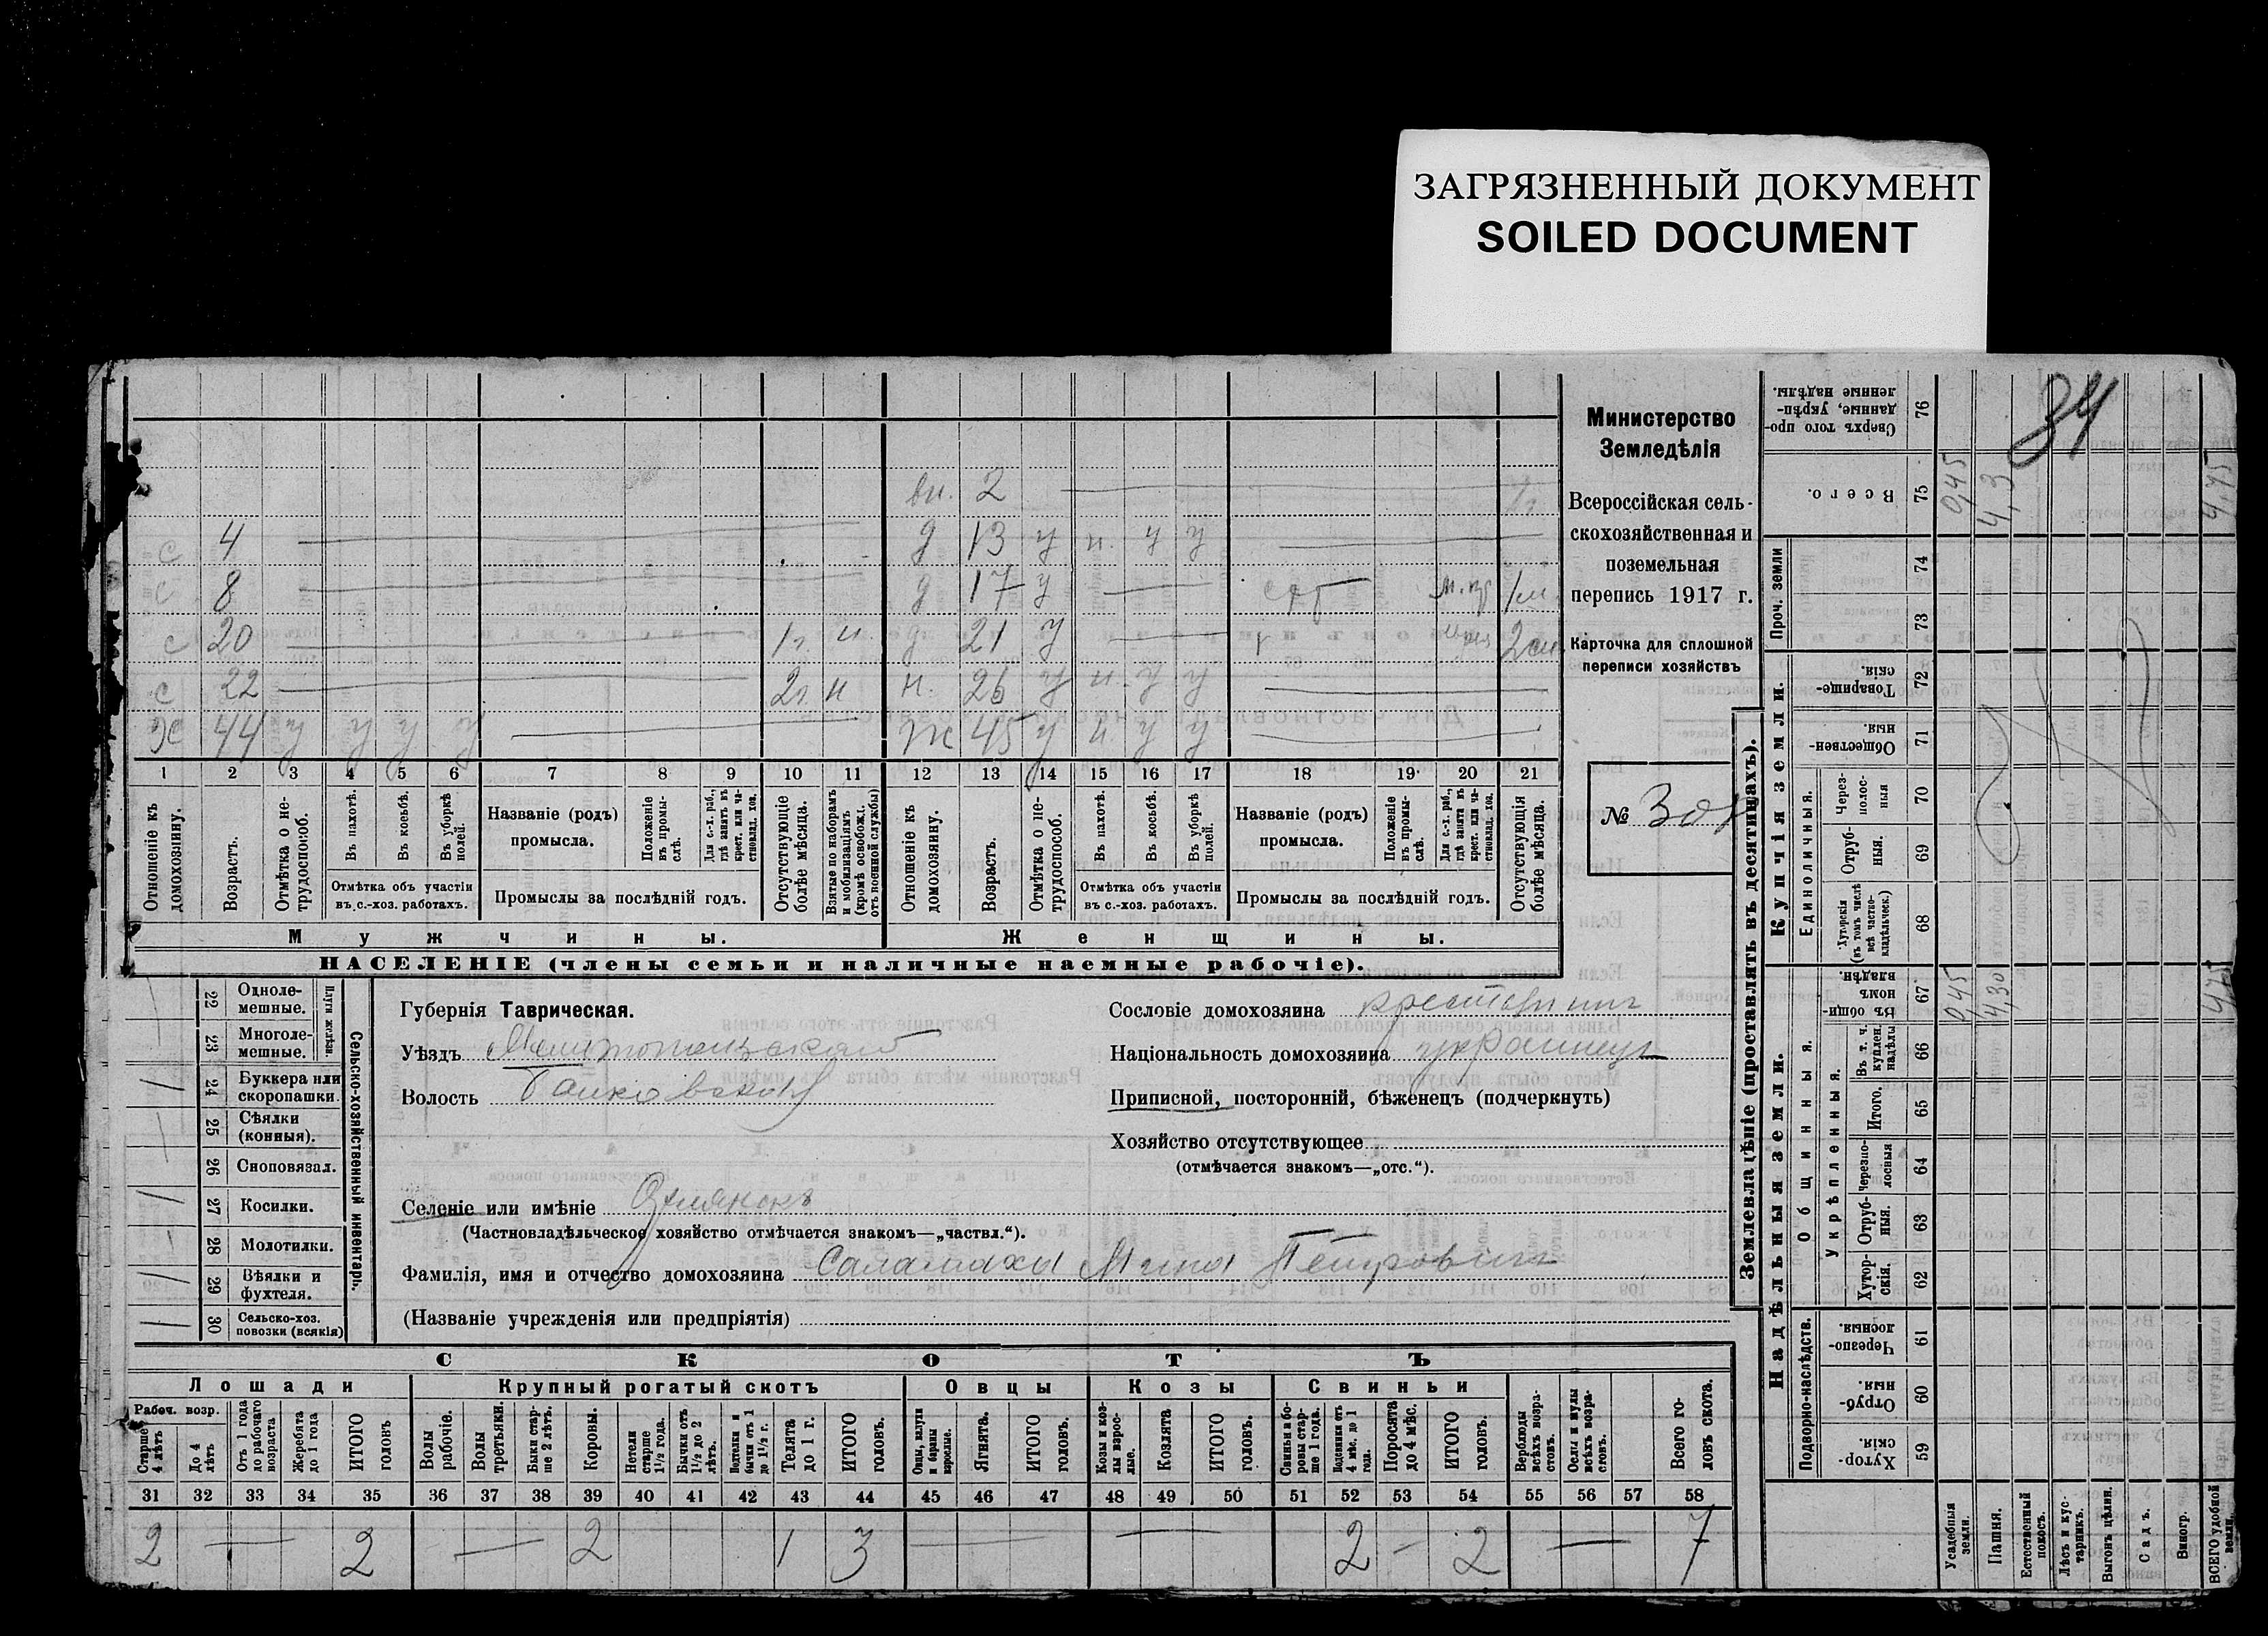 ЗАГРЯЗНЕННЫЙ ДОКУМЕНТ
SOILED DOCUMENT
34
вн. 2
с 4 д 13 у н. у у
с 8 д 17 у 1м.
с 20 1г. н. д. 21 у
с 22 2г. н н. 26 у н. у у
Ж 44 у у у у Ж 45 у н. у у
1 2 3 4 5 6 7 8 9 10 11 12 13 14 15 16 17 18 19 20 21
Отношеніе къ домохозяину.
Возрастъ.
Отмѣтка о не-трудоспособ.
Въ пахотѣ.
Въ косьбѣ.
Въ уборкѣ полей.
Отмѣтка объ участіи
въ с.-хоз. работахъ.
Названіе (родъ)
промысла.
Положеніе въ промы-слѣ.
Для с.-х. раб., гдѣ занятъ въ крест. или ча-стновлад. хоз.
Промыслы за послѣдній годъ.
Отсутствующіе болѣе мѣсяца.
Взятые по наборамъ и мобилизаціямъ (кромѣ освобожд. отъ военной службы)
Отношеніе къ домохозяину.
Возрастъ.
Отмѣтка о не-трудоспособ.
Въ пахотѣ.
Въ косьбѣ.
Въ уборкѣ полей.
Отмѣтка объ участіи
въ с.-хоз. работахъ.
Названіе (родъ)
промысла.
Положеніе въ промы-слѣ.
Для с.-х. раб., гдѣ занята въ крест. или ча-стновлад. хоз.
Промыслы за послѣдній годъ.
Отсутствующія болѣе мѣсяца.
Мужчины.
Женщины.
НАСЕЛЕНІЕ (члены семьи и наличные наемные рабочіе).
Министерство
Земледѣлія
Всероссійская сель-
скохозяйственная и
поземельная
перепись 1917 г.
Карточка для сплошной
переписи хозяйствъ
№
22 Одноле-мешные.
23 Многоле-мешные.
Плуги желѣзн.
24 Буккера или скоропашки.
25 Сѣялки (конныя).
26 Сноповязал.
27 Косилки.
28 Молотилки.
29 Вѣялки и фухтеля.
30 Сельско-хоз. повозки (всякія)
Сельско-хозяйственный инвентарь.
Губернія Таврическая.
Уѣздъ Мелитопольскій
Волость
Селеніе или имѣніе
(Частновладѣльческое хозяйство отмѣчается знакомъ—„частвл.“).
Фамилія, имя и отчество домохозяина Саламаха Мина Петровичъ
(Названіе учрежденія или предпріятія)
Сословіе домохозяина крестьянинъ
Національность домохозяина украинецъ
Приписной, посторонній, бѣженецъ (подчеркнуть)
Хозяйство отсутствующее
(отмѣчается знакомъ—„отс.“).
СКОТЪ
Лошади
Крупный рогатый скотъ
Овцы
Козы
Свиньи
Рабоч. возр.
Старше 4 лѣтъ
До 4 лѣтъ
Отъ 1 года до рабочаго возраста
Жеребята до 1 года
ИТОГО головъ
Волы рабочіе.
Волы третьяки.
Быки стар-ше 2 лѣтъ.
Коровы.
Нетели старше 1½ года.
Бычки отъ 1½ до 2 лѣтъ.
Подтелки и бычки отъ 1 до 1½ г.
Телята до 1 г.
ИТОГО головъ.
Овцы, валухи и бараны взрослые.
Ягнята.
ИТОГО головъ.
Козы и коз-лы взрос-лые.
Козлята
ИТОГО головъ.
Свиньи и бо-ровы стар-ше 1 года.
Подсвинки отъ 4 мѣс. до 1 года.
Поросята до 4 мѣс.
ИТОГО головъ.
Верблюды всѣхъ возра-стовъ.
Ослы и мулы всѣхъ возра-стовъ.
Всего го-ловъ скота.
31 32 33 34 35 36 37 38 39 40 41 42 43 44 45 46 47 48 49 50 51 52 53 54 55 56 57 58
2 — 2 — 2 1 3 — — 2 – 2 — 7
Землевладѣніе (проставлять въ десятинахъ).
Купчія земли.
Надѣльныя земли.
Сверхъ того про-данные, укрѣп-ленные надѣлы. 76
Всего. 75 0,45 4,3 4,75
Проч. земли 74 73
Товарище-скія. 72
Обществен-ныя. 71
Единоличныя.
Через-полос-ныя 70
Отруб-ныя. 69
Хуторскія (въ томъ числѣ всѣ частно-владѣльческ.) 68
Общинныя.
Въ общин-номъ владѣн. 67 0,45 4,30 4,75
Укрѣпленныя.
Въ т. ч. куплен. надѣлы 66
Итого. 65
Черезпо-лосныя 64
Отруб-ныя. 63
Хутор-скія. 62
Подворно-наслѣдств.
Черезпо-лосныя. 61
Отруб-ныя. 60
Хутор-скія. 59
Усадебныя земли.
Пашня.
Естественный покосъ.
Лѣсъ и кус-тарникъ.
Выгонъ цѣлин.
Садъ.
Виногр.
ВСЕГО удобной земли.